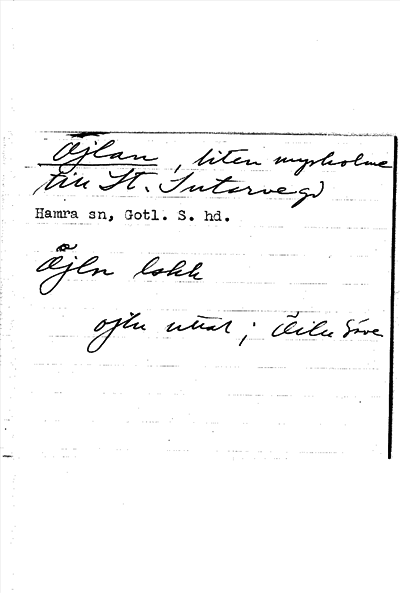 Öjlan, liten myrholme
till St. Sutarve gd
Hamra sn, Gotl. S. hd.
Öjln lokk
ojln uttal; Öilu Säve